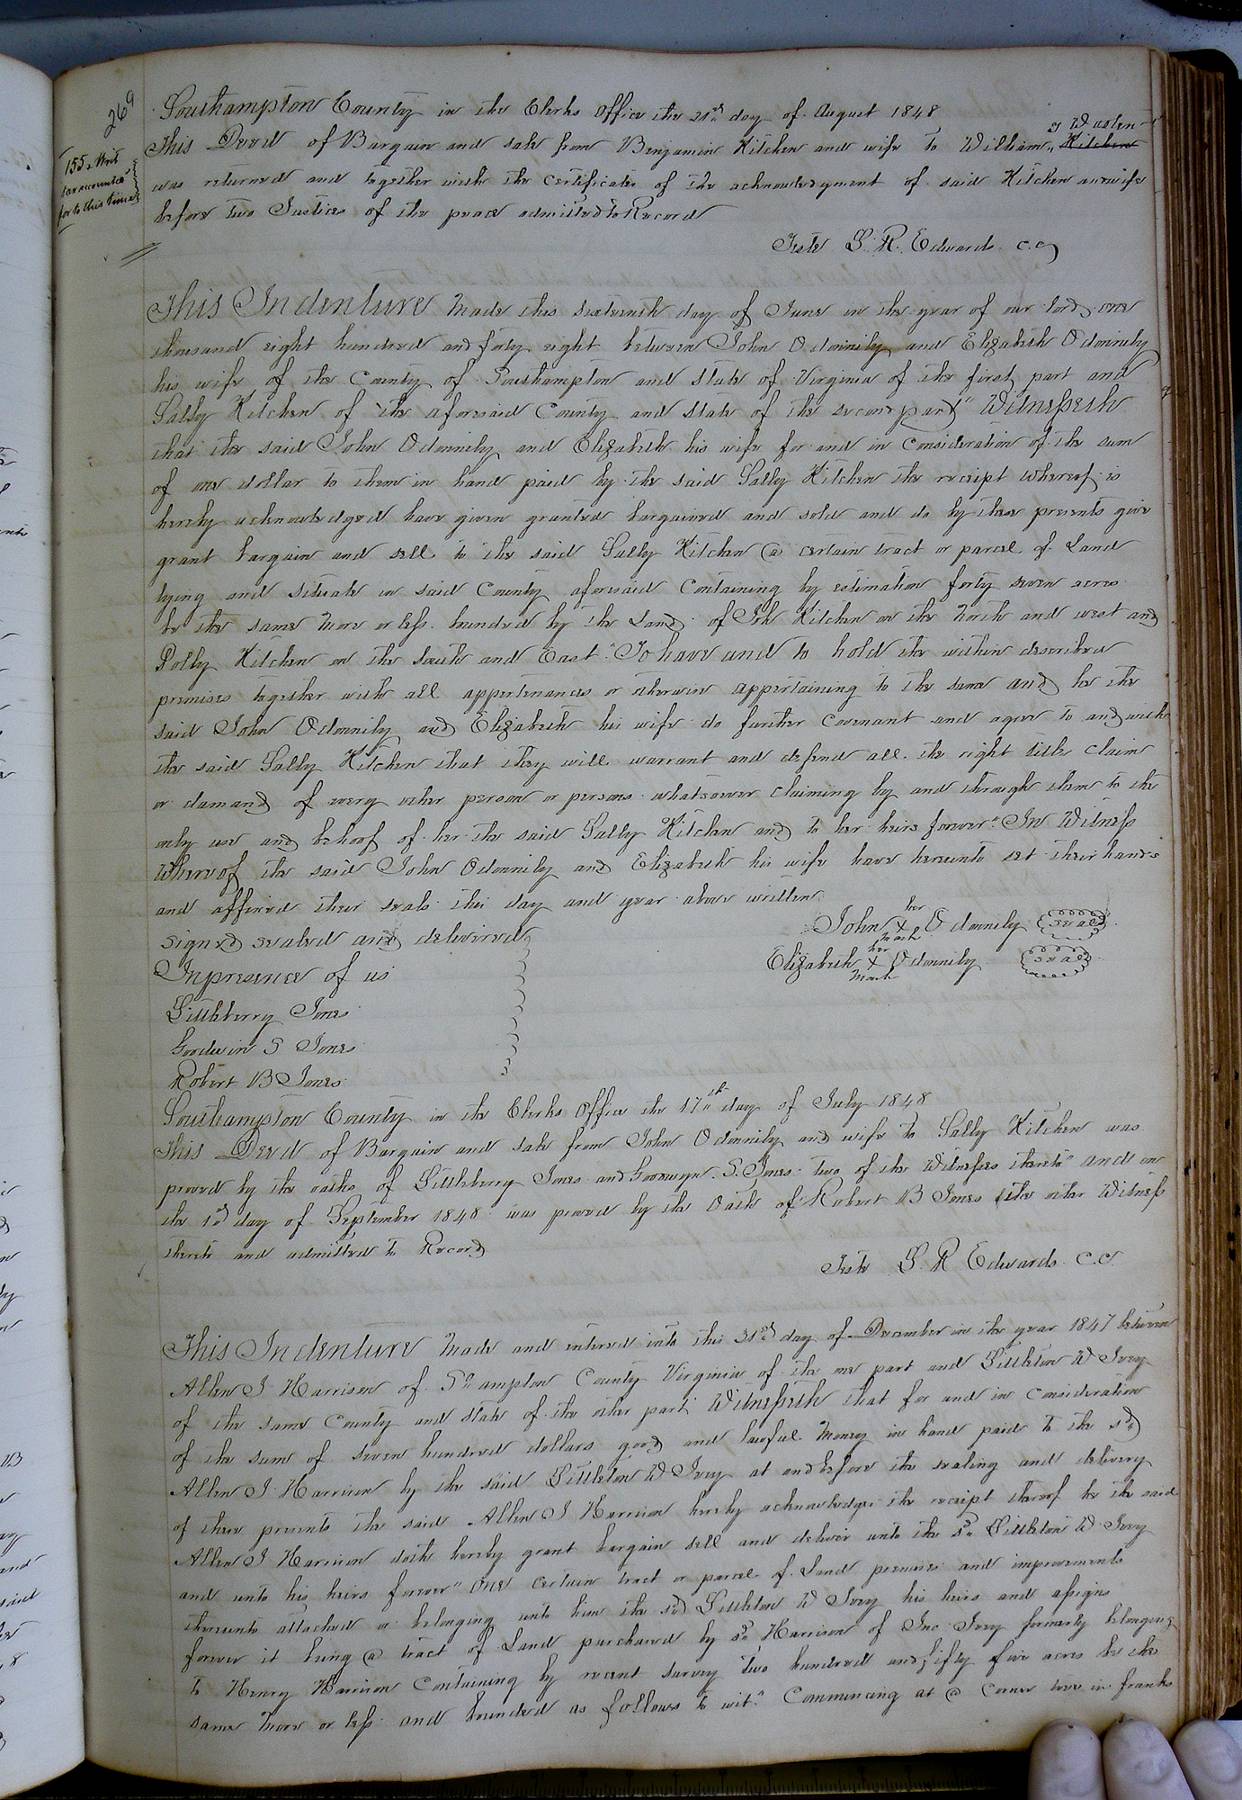 269
155 Writ
Southampton County in the Clerks Office the 21st day of August 1848
This Deed of Bargain and sale from Benjamin Kitchen and wife to William J Waslen Kitchen
was returned and together with the Certificate of the acknowledgment of said Kitchen and wife
before two Justices of the peace admitted to Record
Teste L. R. Edwards c.c
This Indenture Made this sixteenth day of June in the year of our lord one
thousand eight hundred and forty eight between John Odonnily and Elizabeth Odonnily
his wife of the County of Southampton and State of Virginia of the first part and
Sally Kitchen of the aforesaid County and State of the second part" Witnesseth
that the said John Odonnily and Elizabeth his wife for and in Consideration of the sum
of one dollar to them in hand paid by the said Sally Kitchen the receipt whereof is
hereby acknowledged have given granted bargained and sold and do by these presents give
grant bargain and sell to the said Sally Kitchen @ certain tract or parcel of Land
lying and situate in said County aforesaid Containing by estimation forty seven acres
be the same More or less. bounded by the Land of Kitchen on the North and west and
Polly Kitchen on the South and East" To have and to hold the within described
premises together with all appertenances or otherwise appertaining to the same and he the
said John Odonnily and Elizabeth his wife do further Covenant and agree to and with
the said Sally Kitchen that they will warrant and defend all the right title Claim
or demand of every other person or persons whatsoever Claiming by and through them to the
only use and behoof of her the said Sally Kitchen and to her heirs forever" In Witness
Whereof the said John Odonnily and Elizabeth his wife have hereunto set their hands
and affixed their seals this day and year above written
Signed sealed and delivered
In presence of us
Littleberry Jones
Goodwin S Jones
Robert B Jones
John X Odonnily seal
her mark
Elizabeth X Odonnily seal
her mark
Southampton County in the Clerks Office the 17th day of July 1848
This Deed of Bargain and sale from John Odonnily and wife to Sally Kitchen was
proved by the oaths of Littleberry Jones and Goodwyn S. Jones two of the Witnesses thereto" and on
the 1st day of September 1848 was proved by the Oath of Robert B Jones the other Witness
thereto and admitted to Record
Teste L R Edwards C.C.
This Indenture Made and entered into this 31st day of December in the year 1847 between
Allen J Harrison of So hampton County Virginia of the one part and Littleton W Ivey
of the same County and State of the other part Witnesseth that for and in Consideration
of the sum of seven hundred dollars good and lawful Money in hand paid to the sd
Allen J Harrison by the said Littleton W Ivey at and before the sealing and delivery
of these presents the said Allen J Harrison hereby acknowledges the receipt thereof he the said
Allen J Harrison doth hereby grant bargain sell and deliver unto the sd Littleton W Ivey
and unto his heirs forever" One Certain tract or parcel of Land premises and improvements
thereunto attached or belonging unto him the sd Littleton W Ivey his heirs and assigns
forever it being @ tract of Land purchased by sd Harrison of Jno Ivey formerly belonging
to Henry Harrison Containing by recent survey two hundred and fifty five acres be the
same More or less and bounded as follows to wit" Commencing at @ Corner tree in franks